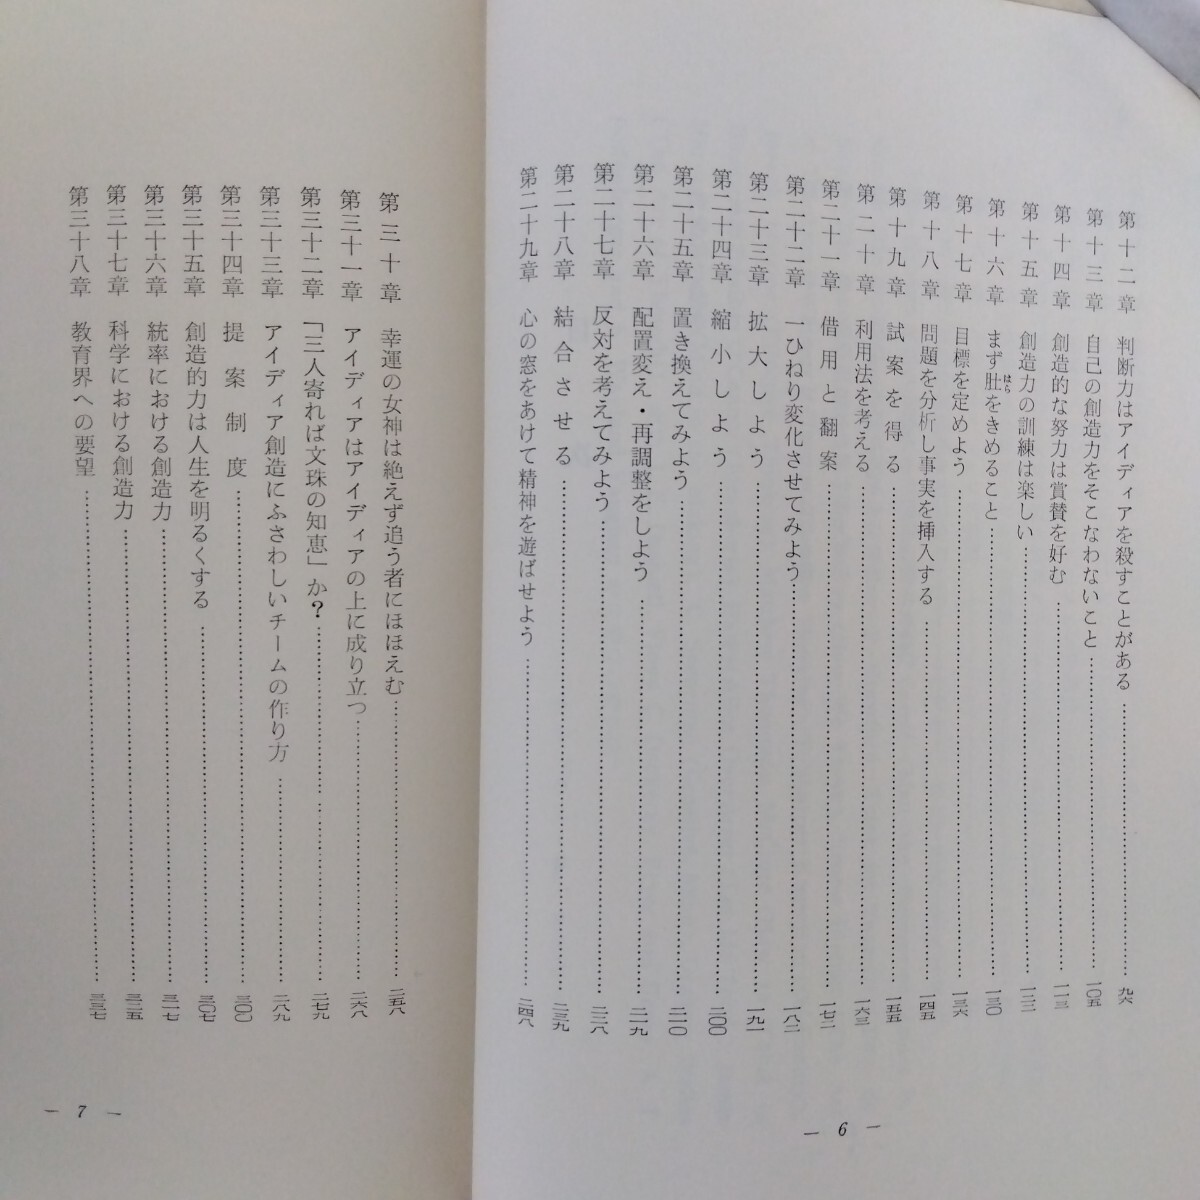 第十二章 判断力はアイディアを殺すことがある……九六
第十三章 自己の創造力をそこなわないこと……一〇五
第十四章 創造的な努力は賞賛を好む……一一三
第十五章 創造力の訓練は楽しい……一二二
第十六章 まず肚をきめること……一三〇
はら
第十七章 目標を定めよう……一三六
第十八章 問題を分析し事実を挿入する……一四五
第十九章 試案を得る……一五五
第二十章 利用法を考える……一六三
第二十一章 借用と翻案……一七二
第二十二章 一ひねり変化させてみよう……一八二
第二十三章 拡大しよう……一九一
第二十四章 縮小しよう……二〇〇
第二十五章 置き換えてみよう……二一〇
第二十六章 配置変え・再調整をしよう……二一九
第二十七章 反対を考えてみよう……二二八
第二十八章 結合させる……二三九
第二十九章 心の窓をあけて精神を遊ばせよう……二四八
― 6 ―
第三十章 幸運の女神は絶えず追う者にほほえむ……二五八
第三十一章 アイディアはアイディアの上に成り立つ……二六八
第三十二章 「三人寄れば文珠の知恵」か?……二七九
第三十三章 アイディア創造にふさわしいチームの作り方……二八九
第三十四章 提案制度……三〇〇
第三十五章 創造的力は人生を明るくする……三〇七
第三十六章 統率における創造力……三一七
第三十七章 科学における創造力……三二五
第三十八章 教育界への要望……三三七
― 7 ―